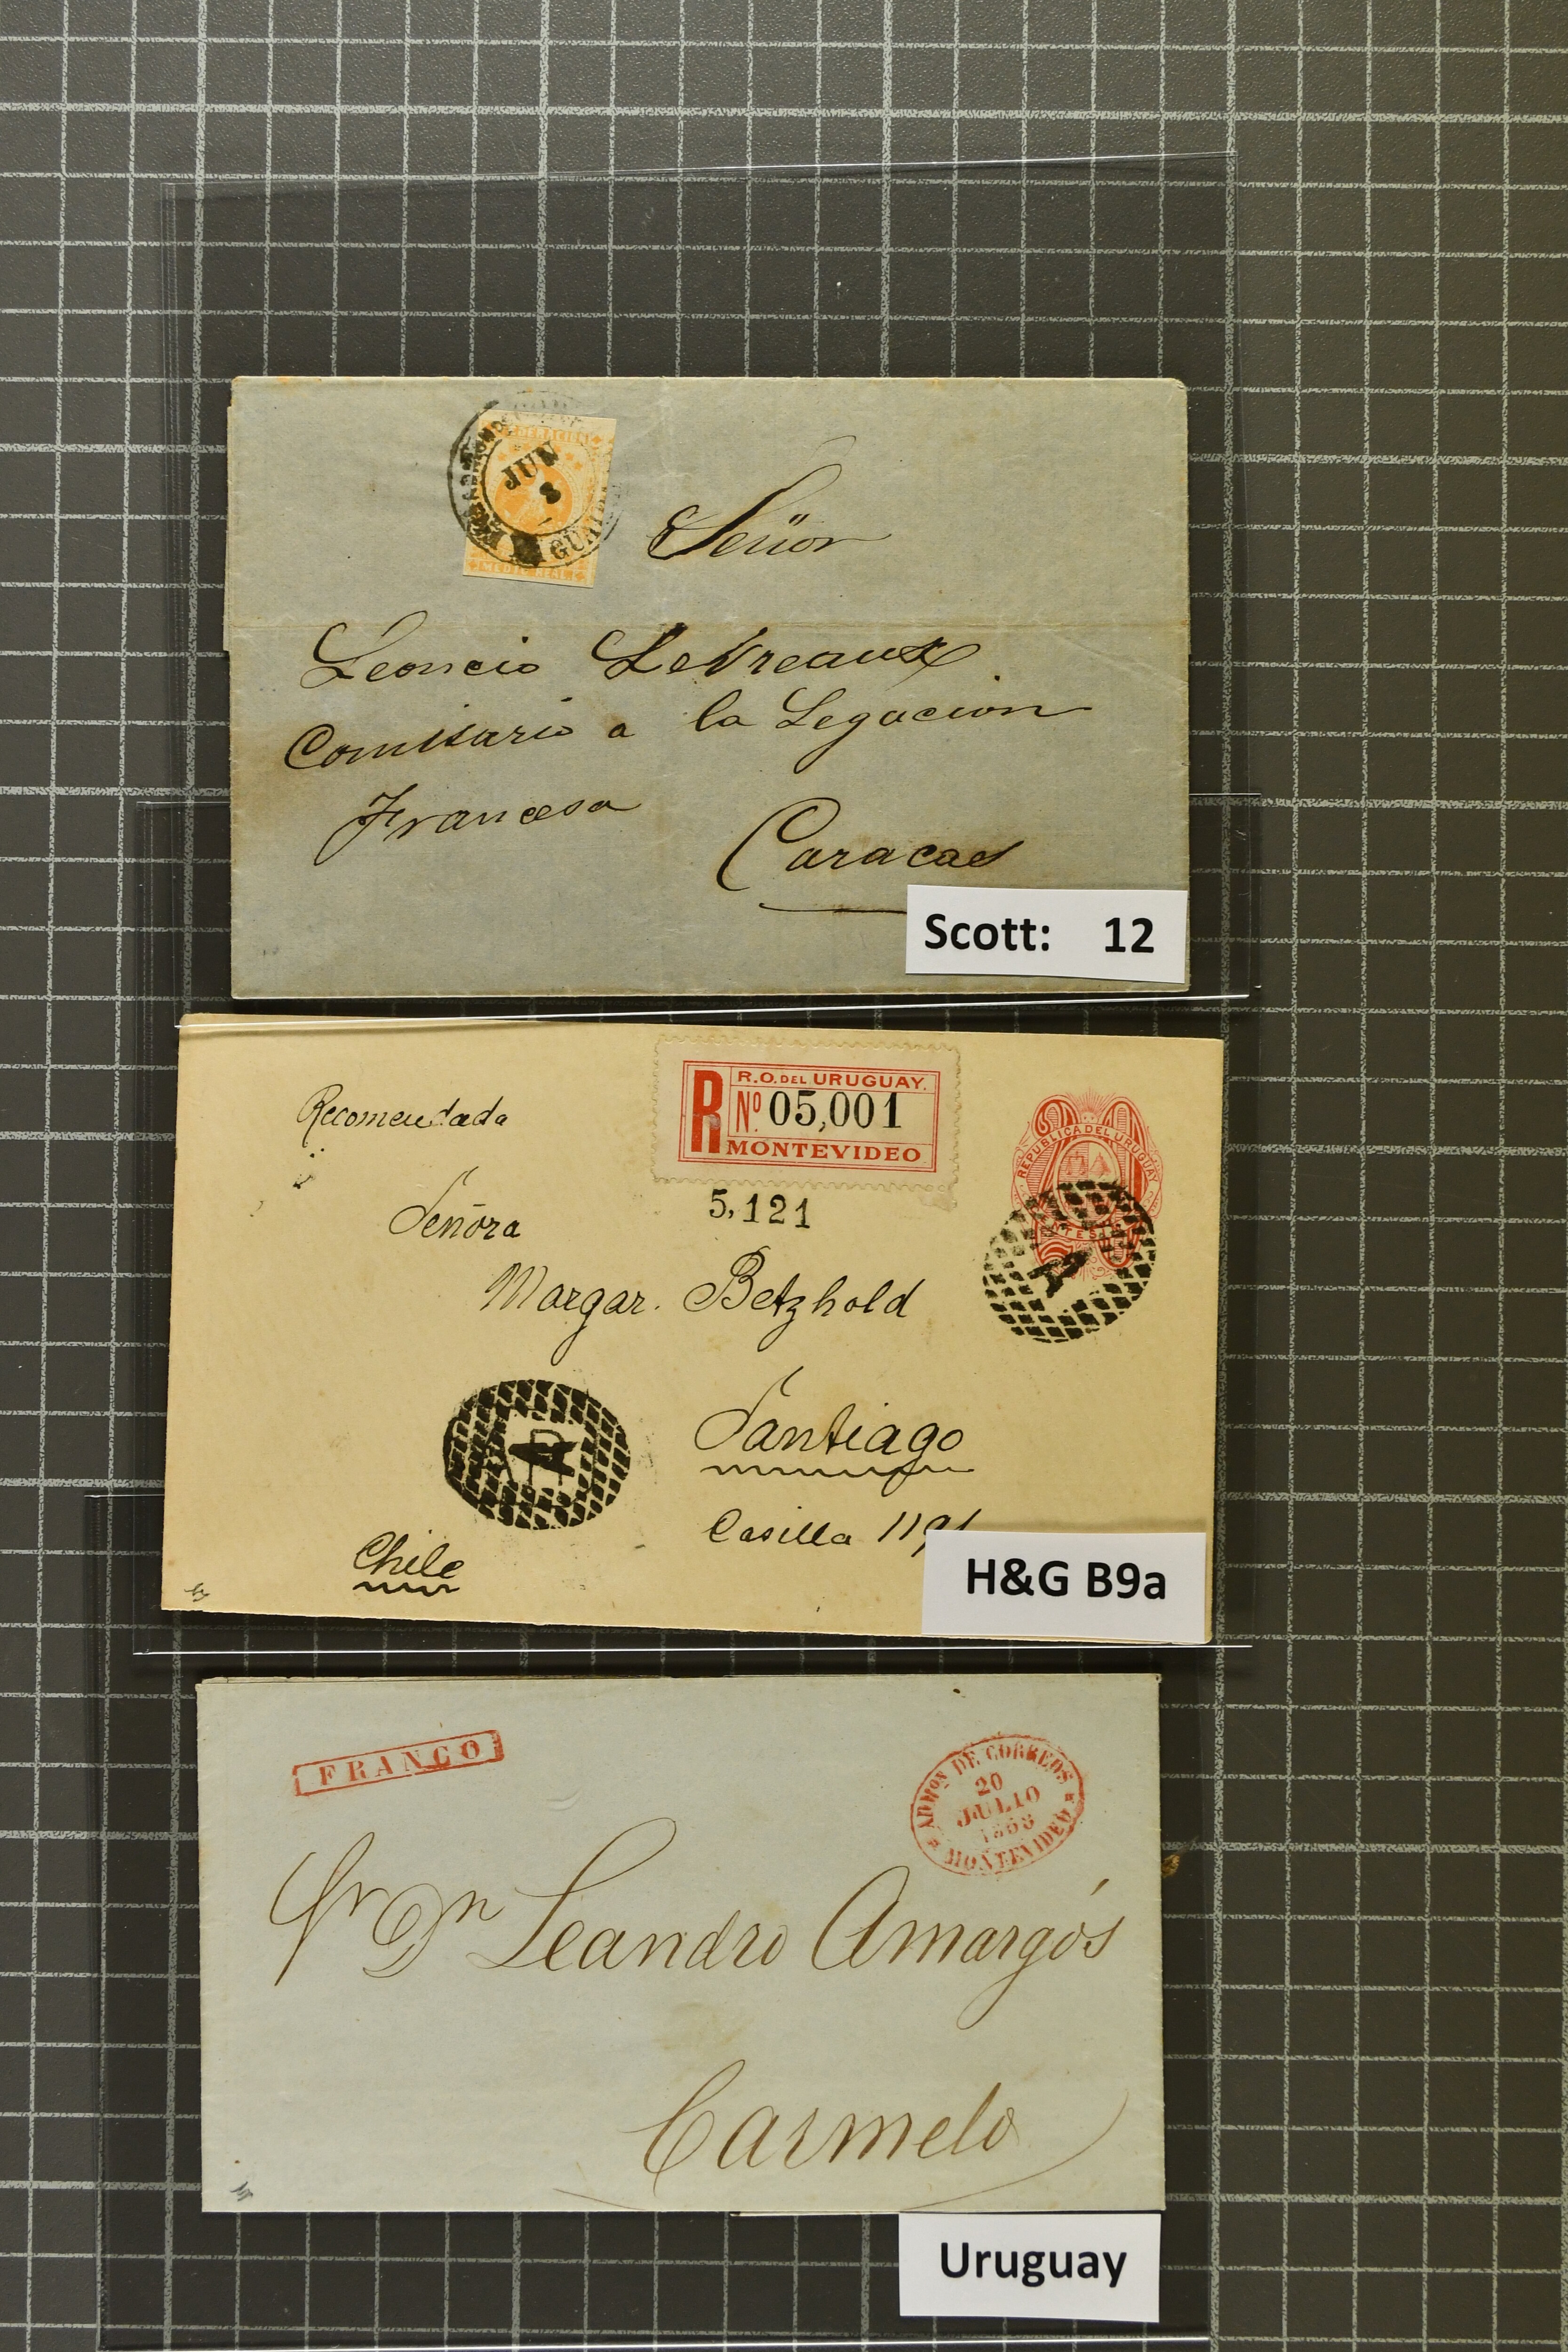 FEDERACION
JUN
8
LA GUAIRA
MEDIO REAL
Señor
Leoncio LeVreaux
Comisario a la Legacion
Francesa
Caracas
Scott: 12
Recomendada
R
R.O. DEL URUGUAY.
Nº 05,001
MONTEVIDEO
5,121
REPUBLICA DEL URUGUAY
Señora
Margar. Betzhold
Santiago
Casilla 1191
Chile
AR
H&G B9a
FRANCO
ADMON DE CORREOS
20
JULIO
MONTEVIDEO
Sr Dn Leandro Amargós
Carmelo
Uruguay